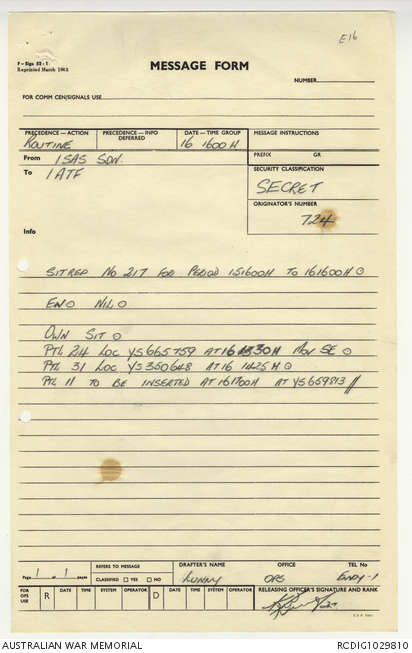 E16
F-Sigs 52-1
Reprinted March 1965
MESSAGE FORM
NUMBER
FOR COMM CEN/SIGNALS USE
PRECEDENCE — ACTION
ROUTINE
PRECEDENCE — INFO
DEFERRED
DATE - TIME GROUP
16 1600H
MESSAGE INSTRUCTIONS
PREFIX GR
From 1 SAS SQN
To 1 ATF
SECURITY CLASSIFICATION
SECRET
ORIGINATOR'S NUMBER
724
Info
SITREP NO 217 FOR PERIOD 151600H TO 161600H ⊙
EN ⊙ NIL ⊙
OWN SIT ⊙
PTL 24 LOC YS665759 AT 16 1530H MOV SE ⊙
PTL 31 LOC YS350648 AT 16 1425H ⊙
PTL 11 TO BE INSERTED AT 161700H AT YS659813 //
Page 1 of 1 pages
REFERS TO MESSAGE
CLASSIFIED YES NO
DRAFTER'S NAME
OFFICE
OPS
TEL No
FOR OPS USE
R DATE TIME SYSTEM OPERATOR D DATE TIME SYSTEM OPERATOR
RELEASING OFFICER'S SIGNATURE AND RANK
AUSTRALIAN WAR MEMORIAL
RCDIG1029810